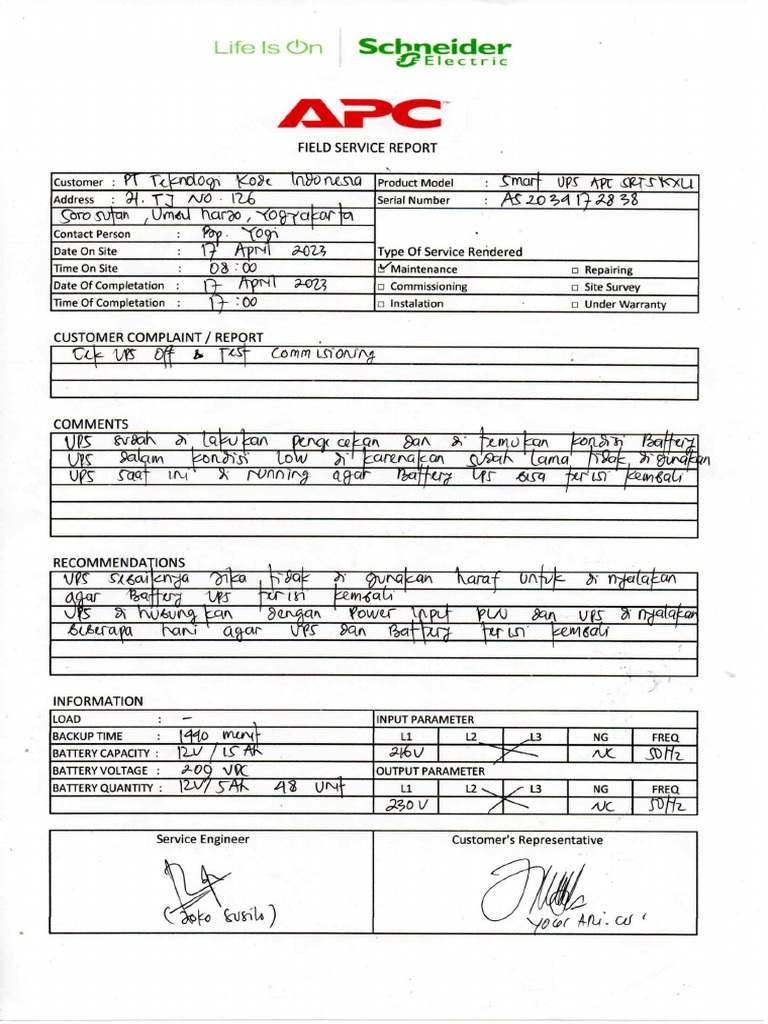 Life Is On
Schneider
Electric
APC
FIELD SERVICE REPORT
Customer : PT Teknologi Kode Indonesia
Product Model : Smart UPS APC SRT5KXLI
Address : Jl. TJ NO. 126
Serial Number : AS2039172838
Sorosutan, Umbul harjo, Yogyakarta
Contact Person : Yogi
Date On Site : 17 April 2023
Type Of Service Rendered
Time On Site : 08:00
☑ Maintenance □ Repairing
Date Of Completation : 17 April 2023
□ Commissioning □ Site Survey
Time Of Completation : 17:00
□ Instalation □ Under Warranty
CUSTOMER COMPLAINT / REPORT
Cek UPS Off & Test Commisioning
COMMENTS
UPS sudah di lakukan pengecekan dan di temukan kondisi Battery
UPS dalam kondisi low di karenakan sudah lama tidak di gunakan
UPS saat ini di running agar Battery UPS bisa terisi kembali
RECOMMENDATIONS
UPS sebaiknya jika tidak di gunakan haraf untuk di nyalakan
agar Battery UPS terisi kembali
UPS di hubungkan dengan Power Input PLN dan UPS di nyalakan
beberapa hari agar UPS dan Battery terisi kembali
INFORMATION
LOAD : -
INPUT PARAMETER
BACKUP TIME : 1440 menit
L1 L2 L3 NG FREQ
BATTERY CAPACITY : 12V/15Ah
216V NC 50Hz
BATTERY VOLTAGE : 209 VDC
OUTPUT PARAMETER
BATTERY QUANTITY : 12V/5Ah 48 Unit
L1 L2 L3 NG FREQ
230V NC 50Hz
Service Engineer
Customer's Representative
(Joko Susilo)